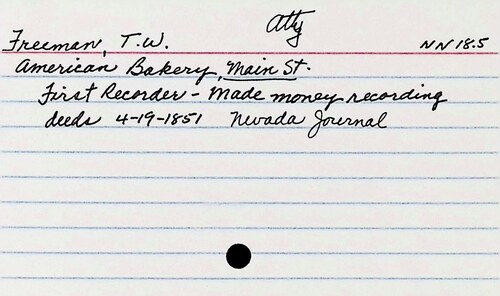 Atty
Freeman, T.W. NN 18.5
American Bakery, Main St.
First Recorder - Made money recording
deeds 4-19-1851 Nevada Journal